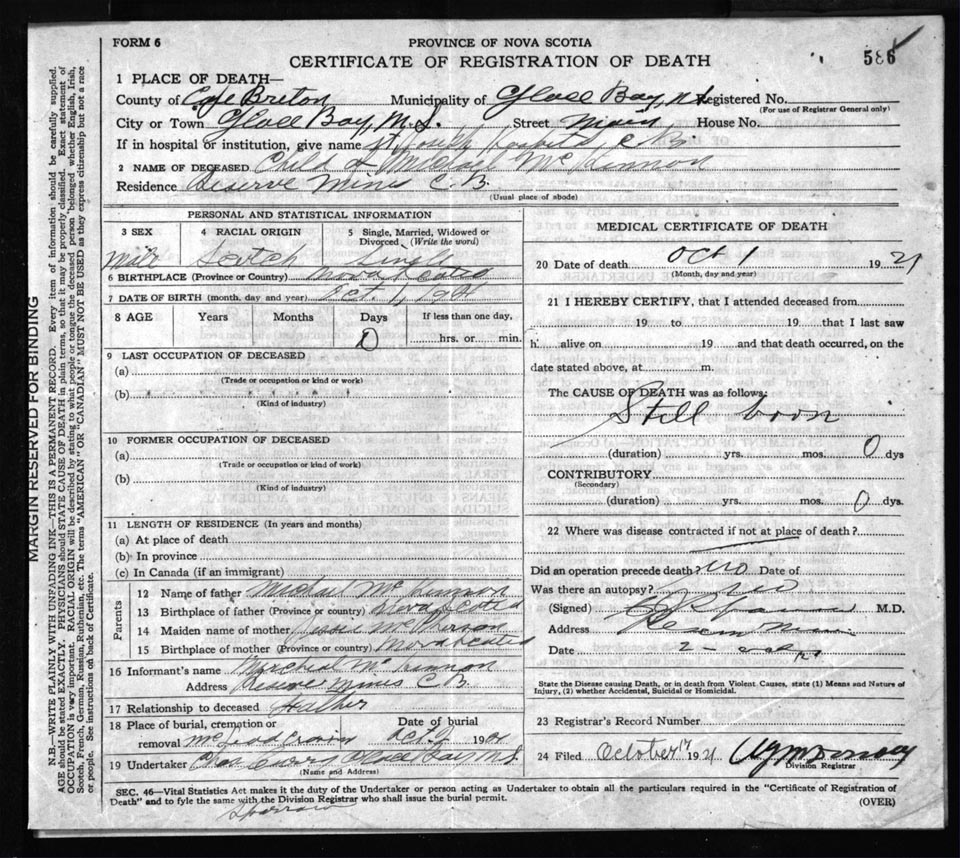 FORM 6
PROVINCE OF NOVA SCOTIA
CERTIFICATE OF REGISTRATION OF DEATH
586
1 PLACE OF DEATH—
County of Cape Breton Municipality of Glace Bay, N.S. Registered No.
(For use of Registrar General only)
City or Town Glace Bay, N.S. Street Main House No.
If in hospital or institution, give name St Joseph Hospital, C.B.
2 NAME OF DECEASED Child of Michael McKinnon
Residence Reserve Mines C.B.
(Usual place of abode)
PERSONAL AND STATISTICAL INFORMATION
3 SEX 4 RACIAL ORIGIN 5 Single, Married, Widowed or Divorced (Write the word)
Male Scotch Single
6 BIRTHPLACE (Province or Country) Nova Scotia
7 DATE OF BIRTH (month, day and year) Oct. 1, 1921
8 AGE Years Months Days If less than one day,
0 hrs. or min.
9 LAST OCCUPATION OF DECEASED
(a)
(Trade or occupation or kind or work)
(b)
(Kind of industry)
10 FORMER OCCUPATION OF DECEASED
(a)
(Trade or occupation or kind of work)
(b)
(Kind of industry)
11 LENGTH OF RESIDENCE (In years and months)
(a) At place of death
(b) In province
(c) In Canada (if an immigrant)
Parents
12 Name of father Michael McKinnon
13 Birthplace of father (Province or country) Nova Scotia
14 Maiden name of mother Jessie McPherson
15 Birthplace of mother (Province or country) Nova Scotia
16 Informant's name Micheal McKinnon
Address Reserve Mines C.B.
17 Relationship to deceased Father
18 Place of burial, cremation or removal McLeod Date of burial Oct. 2 1921
19 Undertaker Glace Bay N.S.
(Name and Address)
MEDICAL CERTIFICATE OF DEATH
20 Date of death Oct 1 1921
(Month, day and year)
21 I HEREBY CERTIFY, that I attended deceased from
19 to 19 that I last saw
h alive on 19 and that death occurred, on the
date stated above, at m.
The CAUSE OF DEATH was as follows:
Still born
(duration) yrs. mos. 0 dys
CONTRIBUTORY
(Secondary)
(duration) yrs. mos. 0 dys.
22 Where was disease contracted if not at place of death?
Did an operation precede death? no Date of
Was there an autopsy? no
(Signed) M.D.
Address Reserve Mines
Date 2 - Oct 1921
State the Disease causing Death, or in death from Violent Causes, state (1) Means and Nature of
Injury, (2) whether Accidental, Suicidal or Homicidal.
23 Registrar's Record Number
24 Filed October 17 1921
Division Registrar
SEC. 46—Vital Statistics Act makes it the duty of the Undertaker or person acting as Undertaker to obtain all the particulars required in the "Certificate of Registration of
Death" and to fyle the same with the Division Registrar who shall issue the burial permit.
(OVER)
Sparrow
MARGIN RESERVED FOR BINDING
N.B.—WRITE PLAINLY WITH UNFADING INK—THIS IS A PERMANENT RECORD. Every item of information should be carefully supplied.
AGE should be stated EXACTLY. PHYSICIANS should STATE CAUSE OF DEATH in plain terms, so that it may be properly classified. Exact statement of
OCCUPATION is very important. RACIAL ORIGIN will be described by stating to what people or tongue the deceased person belonged whether English, Irish,
Scotch, French, German, Russian, Ruthenian, etc. The terms "AMERICAN" OR "CANADIAN" MUST NOT BE USED as they express citizenship but not a race
or people. See instructions on back of Certificate.